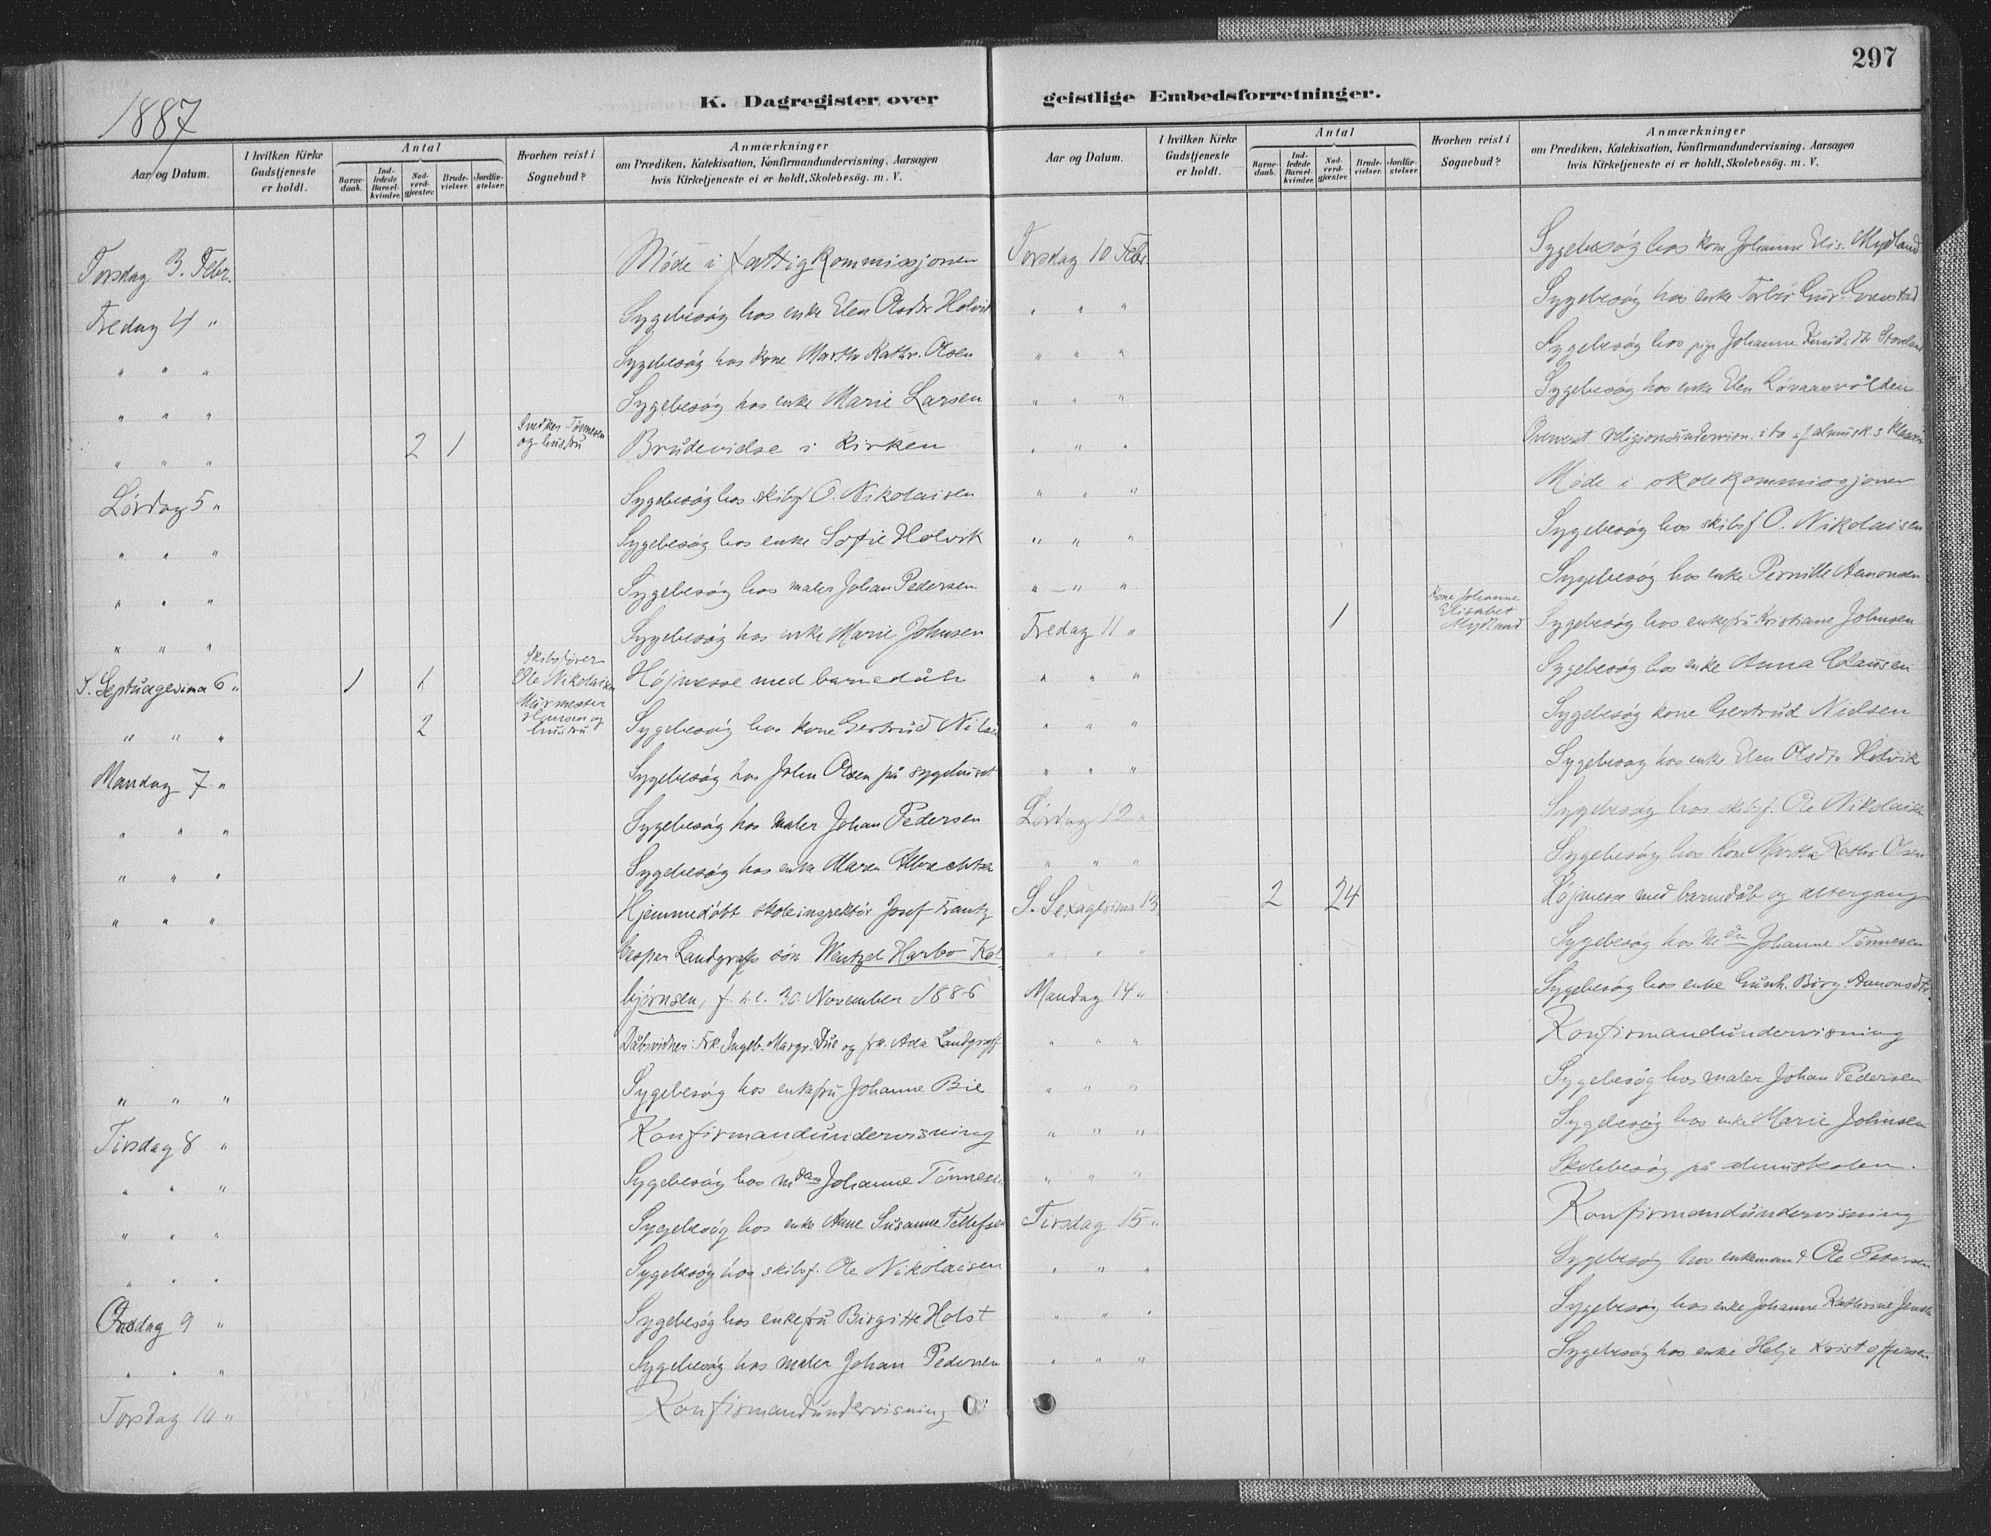 297
1887
K. Dagregister over geistlige Embedsforretninger.
Aar og Datum.
I hvilken Kirke Gudstjeneste er holdt.
Antal
Barne-daab.
Ind-ledede Barsel-kvinder.
Nad-verd-gjæster.
Brude-vielser.
Jordfæ-stelser.
Hvorhen reist i Sognebud?
Anmærkninger
om Prædiken, Katekisation, Konfirmandundervisning, Aarsagen
hvis Kirketjeneste ei er holdt, Skolebesøg. m. V.
Torsdag 3. Febr. Møde i fattigkommissjonen
Fredag 4 " Sygebesøg hos enke Elen Olsdtr Holvik
" " " Sygebesøg hos kone Martha Kathr. Olsen
" " " Sygebesøg hos enke Marie Larsen
" " " 2 1 Snedker Tønnesen og hustru Brudevidse i kirken
Lørdag 5 " Sygebesøg hos skibsf. O. Nikolaisen
" " " Sygebesøg hos enke Sofie Holvik
" " " Sygebesøg hos maler Johan Pedersen
" " " Sygebesøg hos enke Marie Johnsen
S. Septuagesima 6 " 1 1 Skibsfører Ole Nikolaisen Højmesse med barnedåb
" " " 2 Murmester Hansen og hustru Sygebesøg hos kone Gertrud Nilsen
Mandag 7 " Sygebesøg hos John Olsen på sygehuset
" " " Sygebesøg hos maler Johan Pedersen
" " " Sygebesøg hos enke Maren
" " " Hjemmedøbt skoleinspektør Josef Frantz
Casper Landgraffs søn Wentzel Harbo Kol-
bjørnsen, f. h. l. 30. November 1886
Dåbsvidner: Frk. Ingeb. Margr. Due og frk. Ada Landgraff
" " " Sygebesøg hos enkefru Johanne Bie
Tirsdag 8 " Konfirmandundervisning
" " " Sygebesøg hos mdm Johanne Tønnesen
" " " Sygebesøg hos enke Anne Susanne Tellefsen
" " " Sygebesøg hos skibsf. Ole Nikolaisen
Onsdag 9 " Sygebesøg hos enkefru Birgitte Holst
" " " Sygebesøg hos maler Johan Pedersen
Torsdag 10 " Konfirmandundervisning
Aar og Datum.
I hvilken Kirke Gudstjeneste er holdt.
Antal
Barne-daab.
Ind-ledede Barsel-kvinder.
Nad-verd-gjæster.
Brude-vielser.
Jordfæ-stelser.
Hvorhen reist i Sognebud?
Anmærkninger
om Prædiken, Katekisation, Konfirmandundervisning. Aarsagen
hvis Kirketjeneste ei er holdt, Skolebesøg. m. V.
Torsdag 10 Febr. Sygebesøg hos kone Johanne Elis. Mydland
" " " Sygebesøg hos enke Torbør
" " " Sygebesøg hos pige Johanne Knudsdtr
" " " Sygebesøg hos enke Elen Løvaasvolden
" " " Overværet religionsundervisn. i
" " " Møde i skolekommissjonen
" " " Sygebesøg hos skibsf O. Nikolaisen
" " " Sygebesøg hos enke Pernille Aanonsen
Fredag 11 " 1 Kone Johanne Elisabet Mydland Sygebesøg hos enkefru Kristiane Johnsen
" " " Sygebesøg hos enke Anna Clausen
" " " Sygebesøg kone Gertrud Nielsen
" " " Sygebesøg hos enke Elen Olsdtr Holvik
Lørdag 12 " Sygebesøg hos skibsf. Ole Nikolaisen
" " " Sygebesøg hos kone Martha Kathr Olsen
S. Sexagesima 13 2 24 Højmesse med barnedåb og altergang
" " " Sygebesøg hos mdm Johanne Tønnesen
Mandag 14 " Sygebesøg hos enke Gunh. Birg. Aanonsdtr.
" " " Konfirmandundervisning
" " " Sygebesøg hos maler Johan Pedersen
" " " Sygebesøg hos enke Marie Johnsen
" " " Skolebesøg på almuskolen.
Tirsdag 15 " Konfirmandundervisning
" " " Sygebesøg hos enkemand Ole Petersen
" " " Sygebesøg hos enke Johanne Kathrine Jensen
" " " Sygebesøg hos enke Helje Kristoffersen